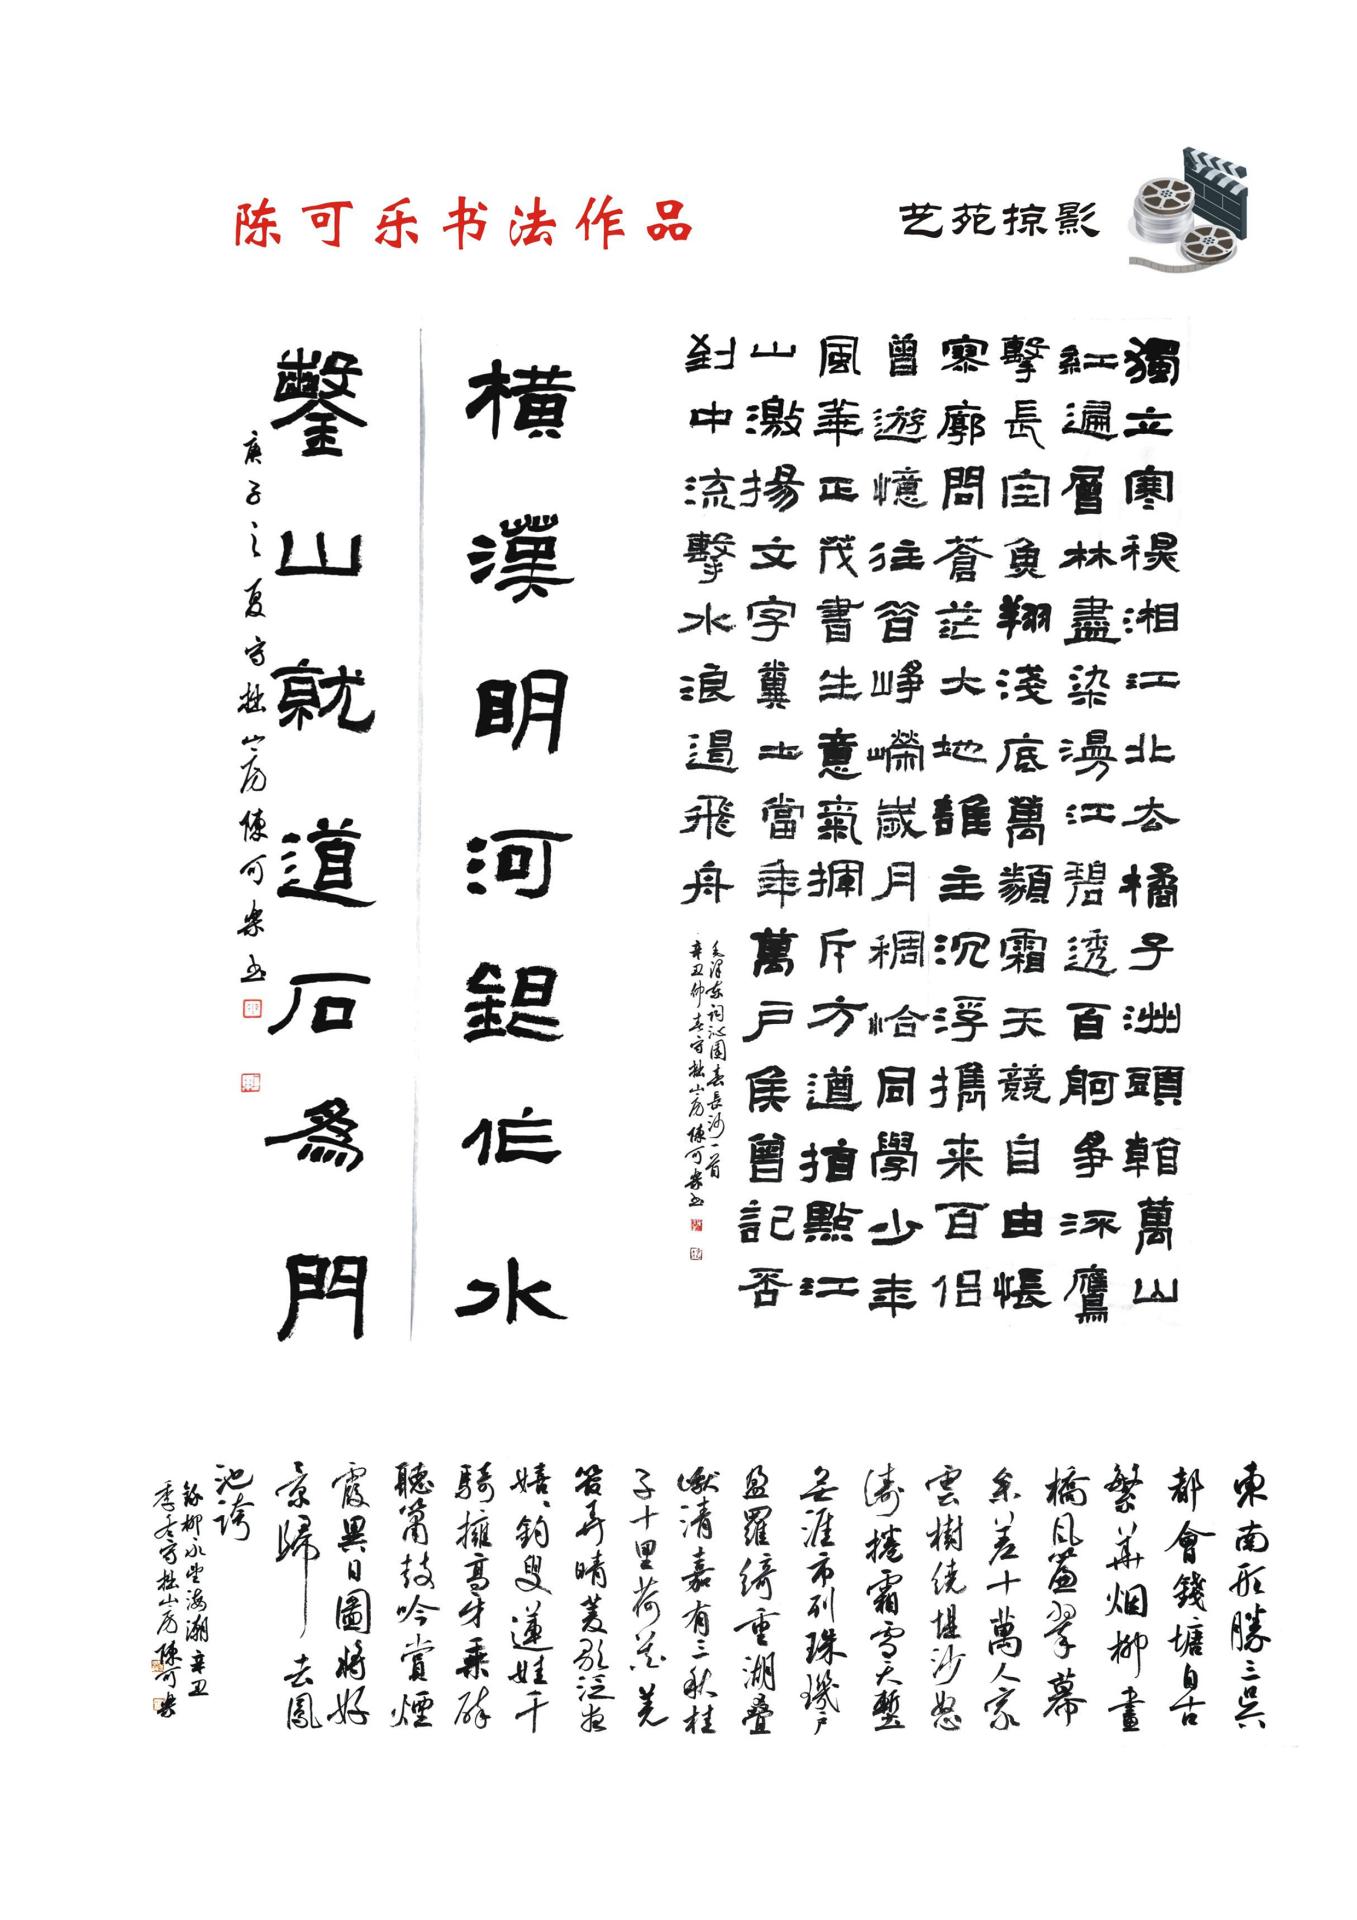 陈可乐书法作品
艺苑掠影
獨立寒秋湘江北去橘子洲頭看萬山
紅遍層林盡染漫江碧透百舸爭流鷹
擊長空魚翔淺底萬類霜天競自由悵
寥廓問蒼茫大地誰主沉浮攜来百侶
曾遊憶往昔崢嶸歲月稠恰同學少年
風華正茂書生意氣揮斥方遒指點江
山激揚文字糞土當年萬戶侯曾記否
到中流擊水浪遏飛舟
毛澤东词沁園春長沙一首
辛丑仲春守拙山房陳可樂书
橫漢明河銀作水
鑿山就道石為門
庚子之夏守拙山房陳可樂书
東南形勝三吳
都會錢塘自古
繁華烟柳畫
橋風簾翠幕
參差十萬人家
雲樹繞堤沙怒
濤捲霜雪天塹
無涯市列珠璣戶
盈羅綺重湖疊
巘清嘉有三秋桂
子十里荷花羌
管弄晴菱歌泛夜
嬉嬉釣叟蓮娃千
騎擁高牙乘醉
聽簫鼓吟賞煙
霞異日圖將好
景歸去鳳
池誇
錄柳永望海潮辛丑
季冬守拙山房陳可樂